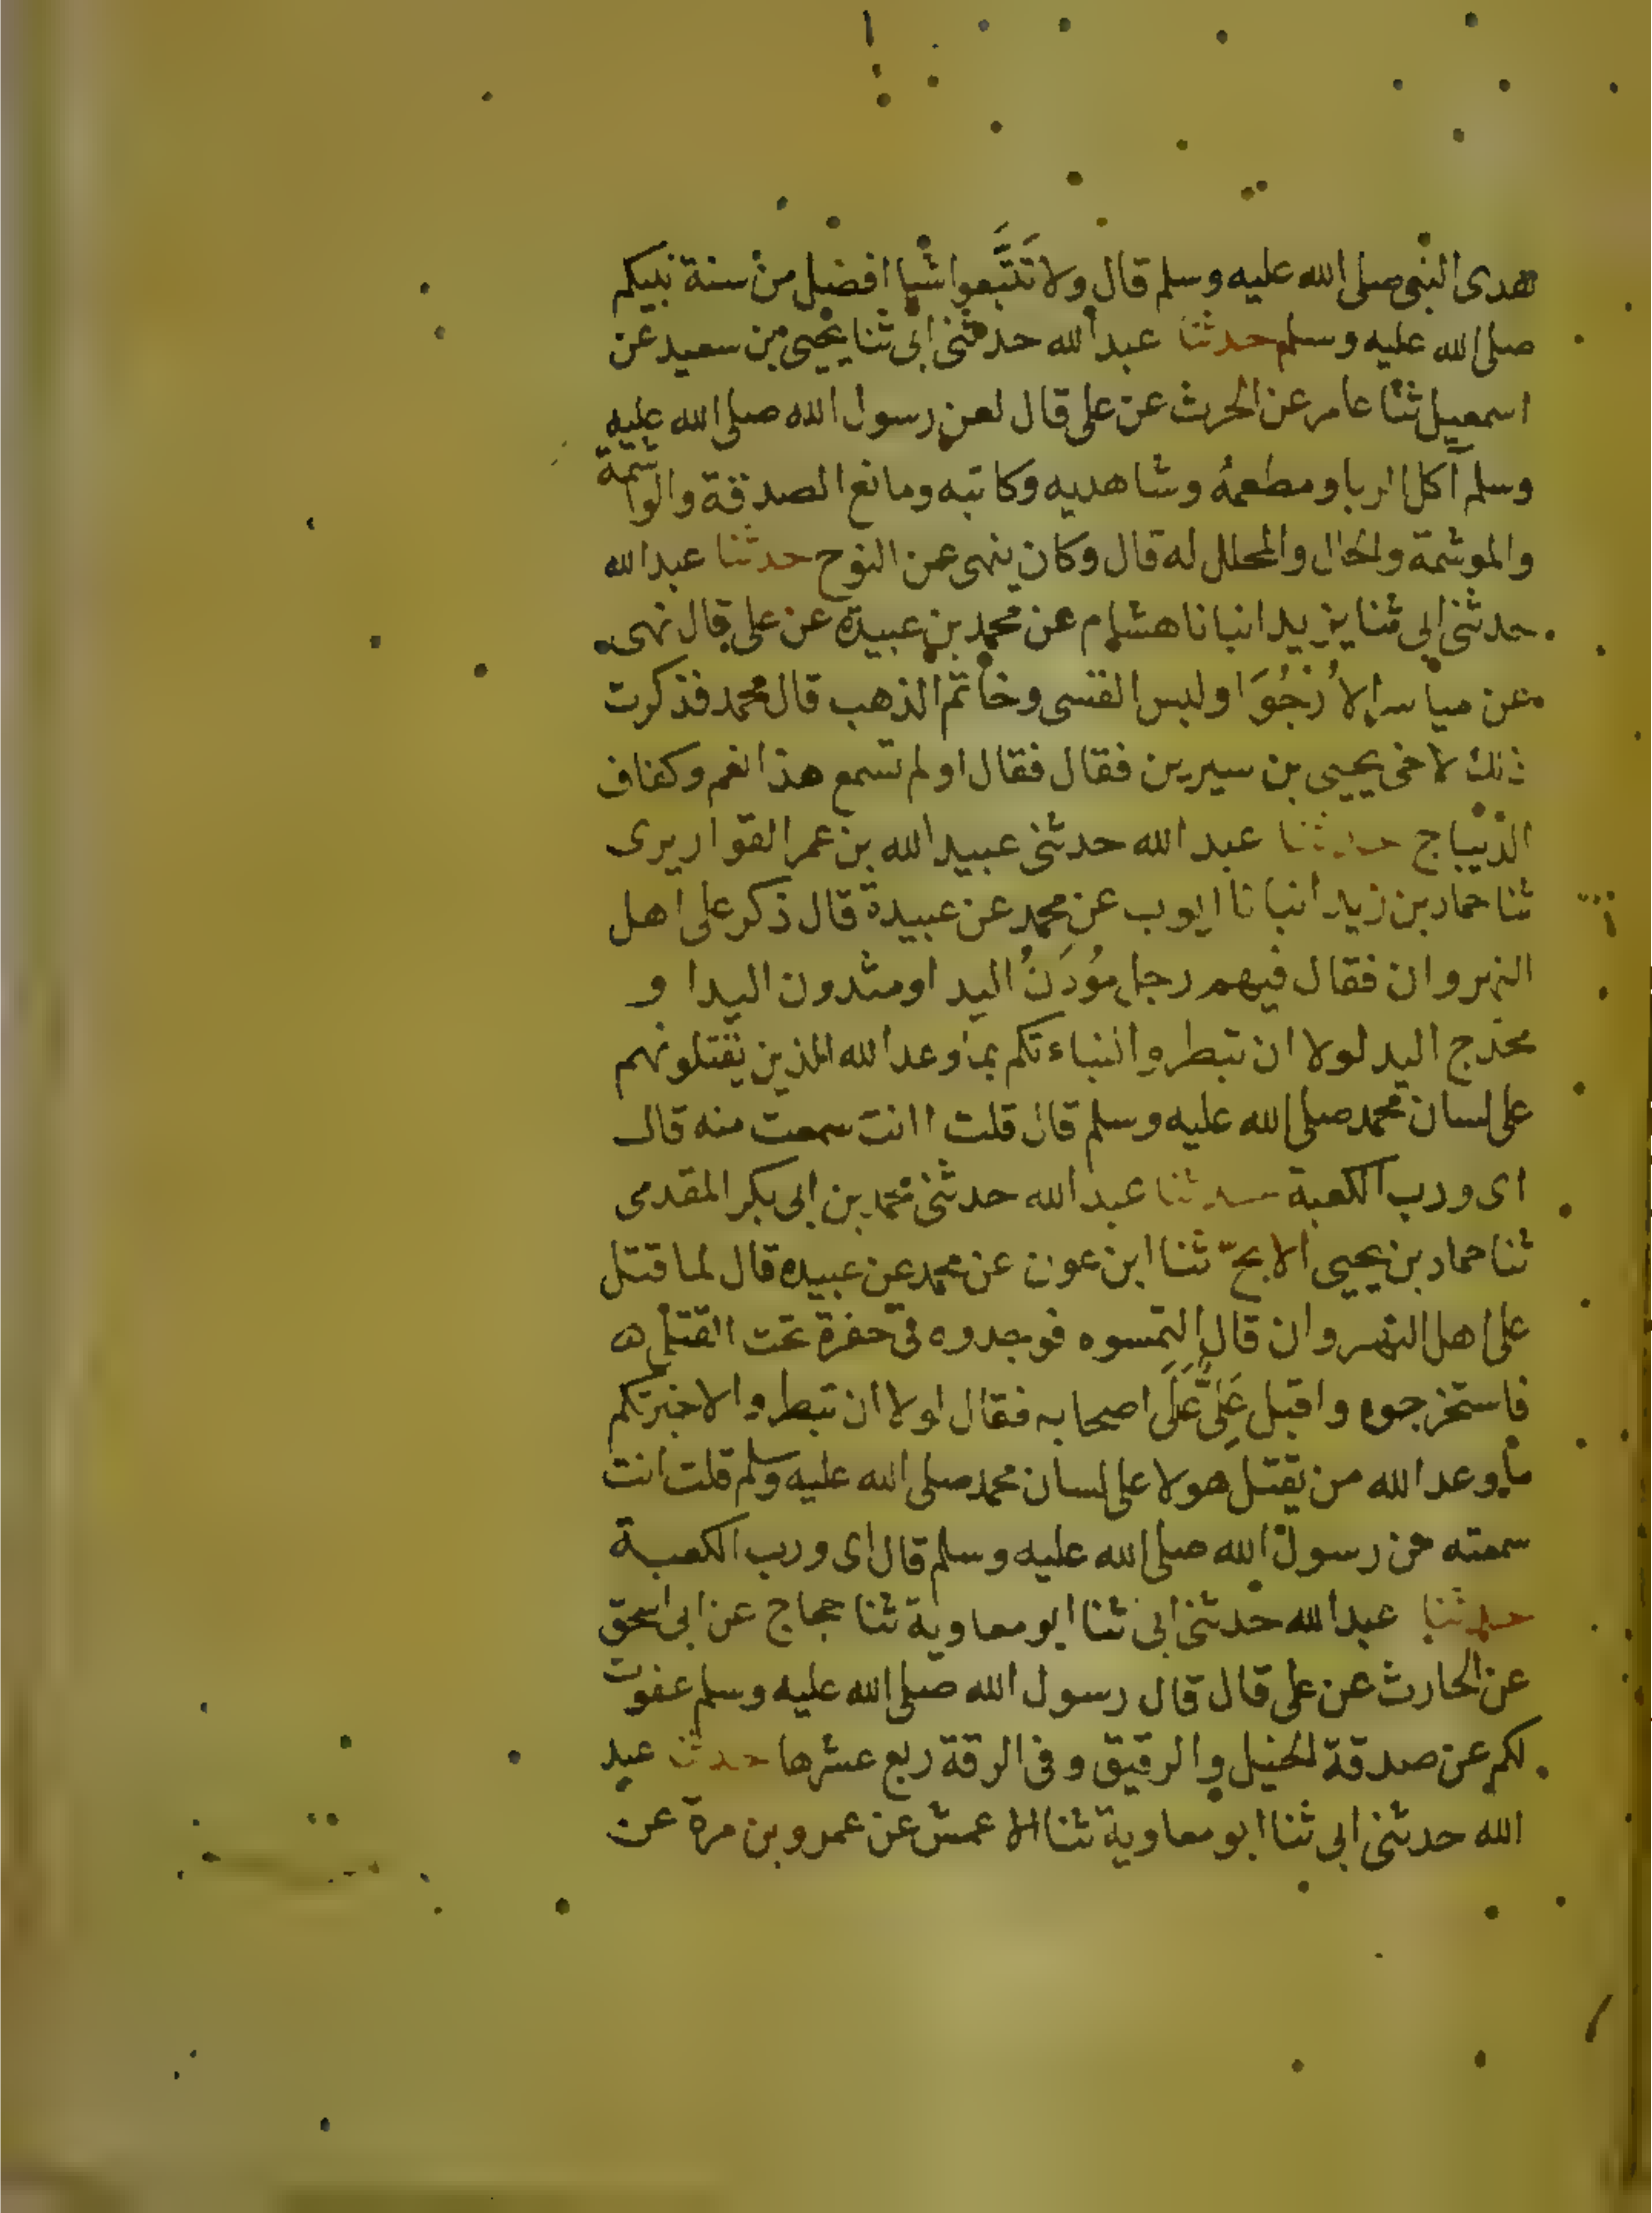 هدى النبى صلى الله عليه وسلم قال ولا تَتَّبعوا شيا افضل من سنة نبيكم
صلى الله عليه وسلم حدثنا عبد الله حدثنى ابى ثنا يحيى بن سعيد عن
اسمعيل ثنا عامر عن الحرث عن على قال لعن رسول الله صلى الله عليه
وسلم آكل الربا ومطعمه وشاهديه وكاتبه ومانع الصدقة والواشمة
والموشمة والحال والمحلل له قال وكان ينهى عن النوح حدثنا عبد الله
حدثنى ابى ثنا يزيد انبانا هشام عن محمد بن عبيدة عن على قال نهى
عن مياسر الأُرْجُوَا ولبس القسى وخاتم الذهب قال محمد فذكرت
ذلك لاخى يحيى بن سيرين فقال فقال او لم تسمع هذا نعم وكفاف
الديباج حدثنا عبد الله حدثنى عبيد الله بن عمر القواريرى
ثنا حماد بن زيد انبانا ايوب عن محمد عن عبيدة قال ذكر على اهل
النهروان فقال فيهم رجل مُودَنُ اليد او مثدون اليد او
مخدج اليد لولا ان تبطروا لنباءتكم بما وعد الله الذين يقتلونهم
على لسان محمد صلى الله عليه وسلم قال قلت اانت سمعت منه قال
اى ورب الكعبة حدثنا عبد الله حدثنى محمد بن ابى بكر المقدمى
ثنا حماد بن يحيى الابحّ ثنا ابن عون عن محمد عن عبيده قال لما قتل
على اهل النهروان قال التمسوه فوجدوه فى حفرة تحت القتلى
فاستخرجوه واقبل عَلِىٌّ عَلَى اصحابه فقال لولا ان تبطروا لاخبرتكم
ما وعد الله من يقتل هولا على لسان محمد صلى الله عليه وسلم قلت انت
سمعته من رسول الله صلى الله عليه وسلم قال اى ورب الكعبة
حدثنا عبد الله حدثنى ابى ثنا ابو معاوية ثنا حجاج عن ابى اسحق
عن الحارث عن على قال قال رسول الله صلى الله عليه وسلم عفوت
لكم عن صدقة الخيل والرقيق وفى الرقة ربع عشرها حدثنا عبد
الله حدثنى ابى ثنا ابو معاوية ثنا الاعمش عن عمرو بن مرة عن